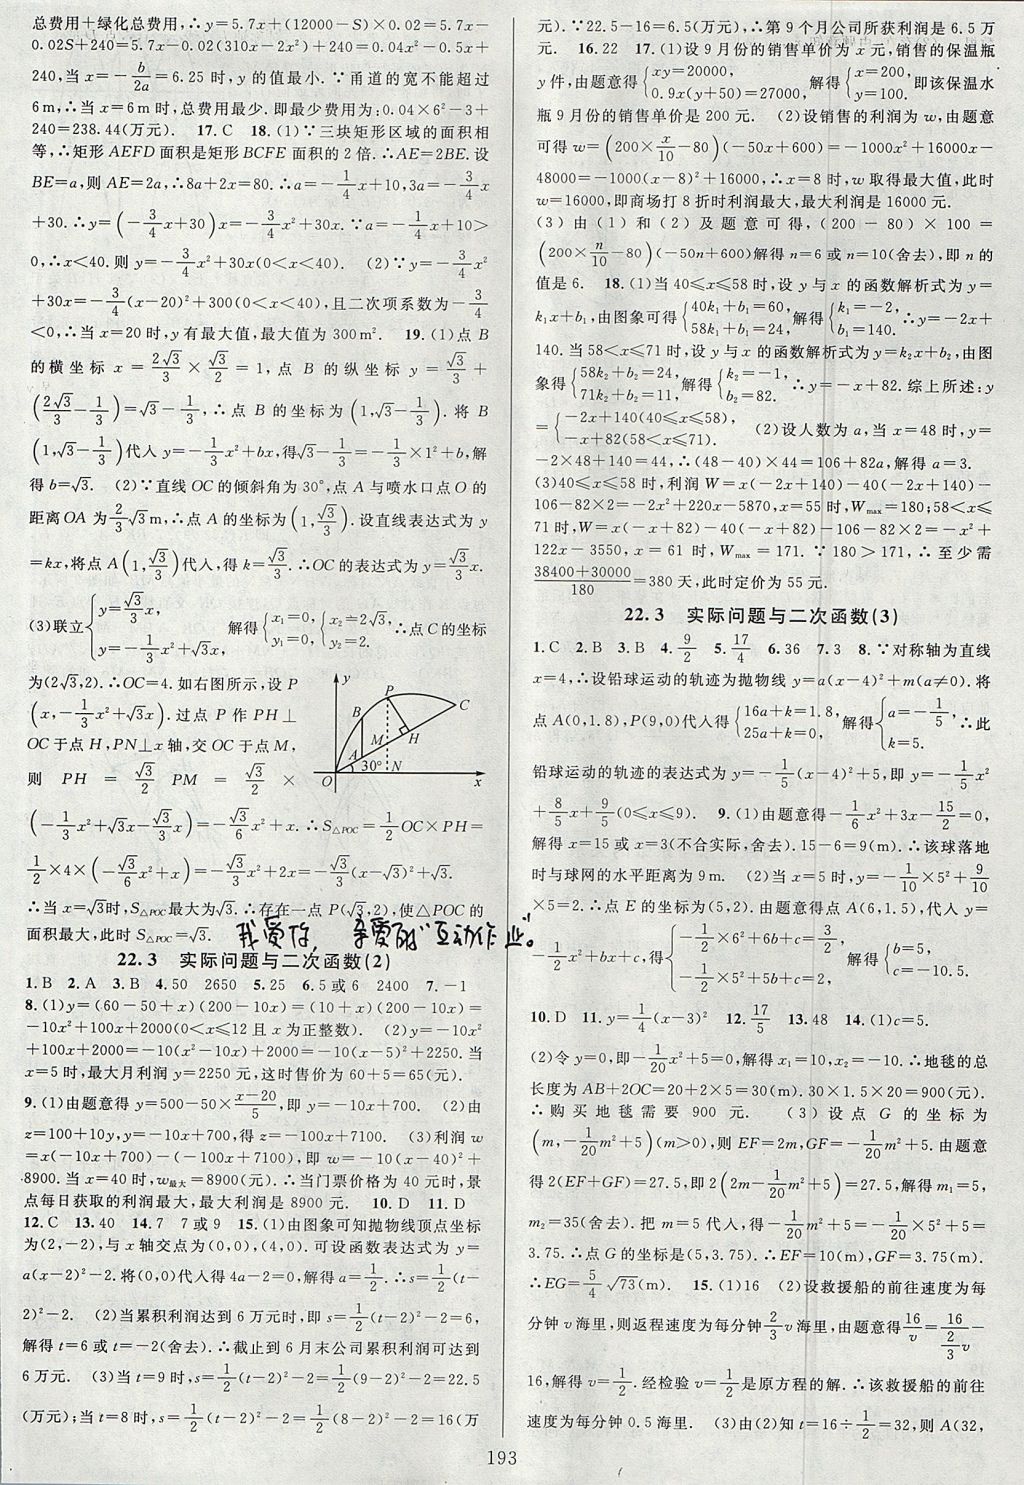 总费用+绿化总费用,∴y=5.7x+(12000-S)×0.02=5.7x-
0.02S+240=5.7x-0.02(310x-2x²)+240=0.04x²-0.5x+
240,当x=-b/2a=6.25时,y的值最小.∵甬道的宽不能超过
6m,∴当x=6m时,总费用最少.即最少费用为:0.04×6²-3+
240=238.44(万元). 17.C 18.(1)∵三块矩形区域的面积相
等,∴矩形AEFD面积是矩形BCFE面积的2倍.∴AE=2BE.设
BE=a,则AE=2a,∴8a+2x=80.∴a=-1/4x+10,3a=-3/4x
+30.∴y=(-3/4x+30)x=-3/4x²+30x.∵a=-1/4x+10>
0,∴x<40.则y=-3/4x²+30x(0<x<40). (2)∵y=-3/4x²
+30x=-3/4(x-20)²+300(0<x<40),且二次项系数为-3/4
<0,∴当x=20时,y有最大值,最大值为300m². 19.(1)点B
的横坐标x=2√3/3×√3/2=1,点B的纵坐标y=√3/3+
(2√3/3-1/3)=√3-1/3,∴点B的坐标为(1,√3-1/3).将B
(1,√3-1/3)代人y=-1/3x²+bx,得√3-1/3=-1/3×1²+b,解
得b=√3. (2)∵直线OC的倾斜角为30°,点A与喷水口点O的
距离OA为2/3√3m,∴点A的坐标为(1,√3/3).设直线表达式为y
=kx,将点A(1,√3/3)代人,得k=√3/3.∴OC的表达式为y=√3/3x.
(3)联立{y=√3/3x, y=-1/3x²+√3x, 解得{x₁=0, y₁=0; {x₂=2√3, y₂=2. ∴点C的坐标
为(2√3,2).∴OC=4.如右图所示,设P
(x,-1/3x²+√3x).过点P作PH⊥
OC于点H,PN⊥x轴,交OC于点M,
则PH=√3/2PM=√3/2×
(-1/3x²+√3x-√3/3x)=-√3/6x²+x.∴S△POC=1/2OC×PH=
1/2×4×(-√3/6x²+x)=-√3/3x²+2x=-√3/3(x-√3)²+√3.
∴当x=√3时,S△POC最大为√3.∴存在一点P(√3,2),使△POC的
面积最大,此时S△POC=√3.
y P B C A M H 30° O N x
我爱你,亲爱的“互动作业”。
22.3 实际问题与二次函数(2)
1.B 2.A 3.B 4.50 2650 5.25 6.5或6 2400 7.-1
8.(1)y=(60-50+x)(200-10x)=(10+x)(200-10x)=
-10x²+100x+2000(0<x≤12且x为正整数). (2)y=-10x²
+100x+2000=-10(x²-10x)+2000=-10(x-5)²+2250.当
x=5时,最大月利润y=2250元,这时售价为60+5=65(元).
9.(1)由题意得y=500-50×(x-20)/5,即y=-10x+700. (2)由
z=100+10y,y=-10x+700,得z=-100x+7100. (3)利润w
=x(-10x+700)-(-100x+7100),即w=-10(x-40)²+
8900.当x=40时,w最大=8900(元).∴当门票价格为40元时,景
点每日获取的利润最大,最大利润是8900元. 10.D 11.D
12.C 13.40 14.7 7或9 15.(1)由图象可知抛物线顶点坐标
为(2,-2),与x轴交点为(0,0),(4,0).可设函数表达式为y=
a(x-2)²-2.将(0,0)代人得4a-2=0,解得a=1/2.∴s=1/2(t-
2)²-2. (2)当累积利润达到6万元时,即s=1/2(t-2)²-2=6,
解得t=6或t=-2(舍去).∴截止到6月末公司累积利润可达到
6万元. (3)当t=9时,s=1/2(t-2)²-2=1/2(9-2)²-2=22.5
(万元);当t=8时,s=1/2(t-2)²-2=1/2(8-2)²-2=16(万
元).∵22.5-16=6.5(万元),∴第9个月公司所获利润是6.5万
元. 16.22 17.(1)设9月份的销售单价为x元,销售的保温瓶
y件,由题意得{xy=20000, 0.9x(y+50)=27000, 解得{x=200, y=100. 即该保温水
瓶9月份的销售单价是200元. (2)设销售的利润为w,由题意
可得w=(200×x/10-80)(-50x+600)=-1000x²+16000x-
48000=-1000(x-8)²+16000.∴x=8时,w取得最大值,此时
w=16000,即商场打8折时利润最大,最大利润是16000元.
(3)由(1)和(2)及题意可得,(200-80)×100=
(200×n/10-80)(-50n+600)解得n=6或n=10(舍去),即n的
值是6. 18.(1)当40≤x≤58时,设y与x的函数解析式为y=
k₁x+b₁,由图象可得{40k₁+b₁=60, 58k₁+b₁=24, 解得{k₁=-2, b₁=140. ∴y=-2x+
140.当58<x≤71时,设y与x的函数解析式为y=k₂x+b₂,由图
象得{58k₂+b₂=24, 71k₂+b₂=11, 解得{k₂=-1, b₂=82. ∴y=-x+82.综上所述:y
={-2x+140(40≤x≤58), -x+82(58<x≤71). (2)设人数为a,当x=48时,y=
-2×48+140=44,∴(48-40)×44=106+82a,解得a=3.
(3)40≤x≤58时,利润W=x(-2x+140)-40(-2x+140)-
106-82×2=-2x²+220x-5870,x=55时,Wmax=180;58<x≤
71时,W=x(-x+82)-40(-x+82)-106-82×2=-x²+
122x-3550,x=61时,Wmax=171.∵180>171,∴至少需
(38400+30000)/180=380天,此时定价为55元.
22.3 实际问题与二次函数(3)
1.C 2.B 3.B 4.9/2 5.17/4 6.36 7.3 8.∵对称轴为直线
x=4,∴设铅球运动的轨迹为抛物线y=a(x-4)²+m(a≠0).将
点A(0,1.8),P(9,0)代人得{16a+k=1.8, 25a+k=0, 解得{a=-1/5, k=5. ∴此
铅球运动的轨迹的表达式为y=-1/5(x-4)²+5,即y=-1/5x²
+8/5x+9/5(0≤x≤9). 9.(1)由题意得-1/6x²+3x-15/2=0,
解得x=15或x=3(不合实际,舍去).15-6=9(m).∴该球落地
时与球网的水平距离为9m. (2)当x=5时,y=-1/10×5²+9/10
×5=2.∴点E的坐标为(5,2).由题意得点A(6,1.5),代人y=
-1/2x²+bx+c得{-1/2×6²+6b+c=3/2, -1/2×5²+5b+c=2, 解得{b=5, c=-10.5.
10.D 11.y=1/4(x-3)² 12.17/5 13.48 14.(1)c=5.
(2)令y=0,即-1/20x²+5=0,解得x₁=10,x₂=-10.∴地毯的总
长度为AB+2OC=20+2×5=30(m).30×1.5×20=900(元).
∴购买地毯需要900元. (3)设点G的坐标为
(m,-1/20m²+5)(m>0),则EF=2m,GF=-1/20m²+5.由题意
得2(EF+GF)=27.5,即2(2m-1/20m²+5)=27.5,解得m₁=5,
m₂=35(舍去).把m=5代人,得-1/20m²+5=-1/20×5²+5=
3.75.∴点G的坐标是(5,3.75).∴EF=10(m),GF=3.75(m).
∴EG=5/4√73(m). 15.(1)16 (2)设救援船的前往速度为每
分钟v海里,则返程速度为每分钟2/3v海里,由题意得16/v=16/(2/3v)-
16,解得v=1/2.经检验v=1/2是原方程的解.∴该救援船的前往
速度为每分钟0.5海里. (3)由(2)知t=16÷1/2=32,则A(32,
193